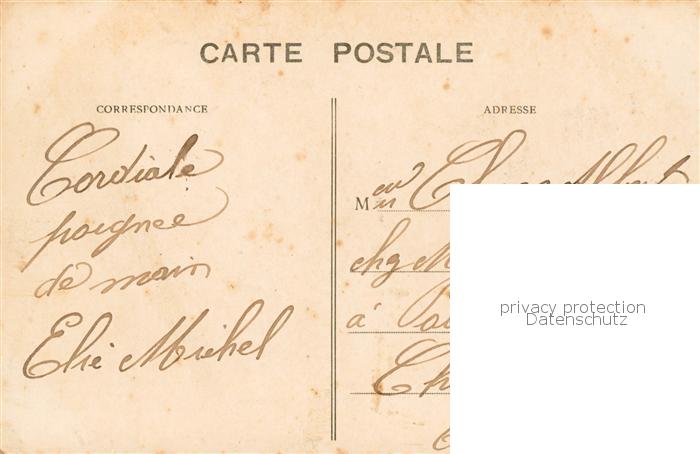 CARTE POSTALE
CORRESPONDANCE
Cordiale
poignee
de main
Elie Michel
ADRESSE
M
chez M
à
privacy protection
Datenschutz